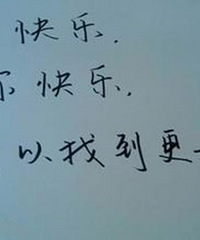 快乐.
尔快乐.
以找到更